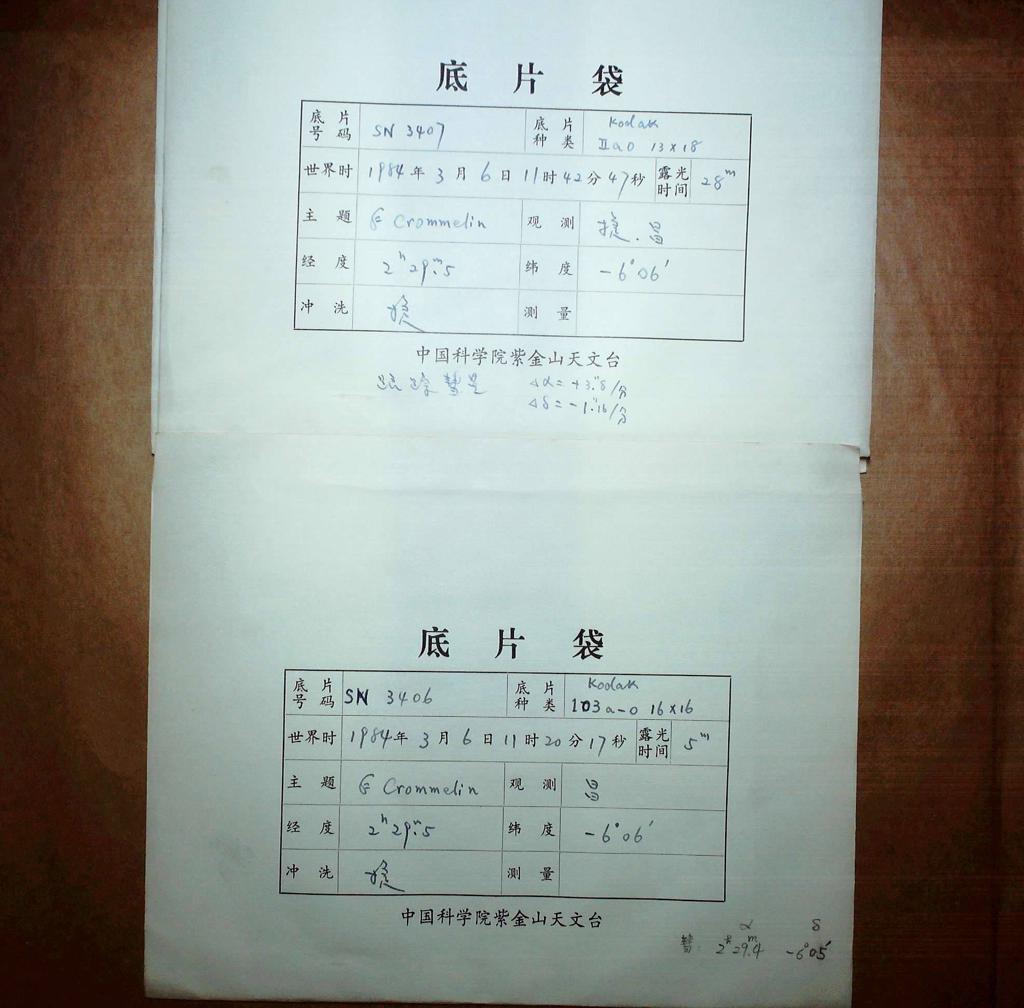 底 片 袋
底片号码 SN 3407 底片种类 Kodak IIaO 13×18
世界时 1984年 3月 6日 11时 42分 47秒 露光时间 28ᵐ
主 题 Crommelin 观 测 捷.昌
经 度 2ʰ 29ᵐ.5 纬 度 -6°06′
冲 洗 捷 测 量
中国科学院紫金山天文台
跟踪彗星 Δα = +3″.8/分
Δδ = -1″.16/分
底 片 袋
底片号码 SN 3406 底片种类 Kodak 103a-O 16×16
世界时 1984年 3月 6日 11时 20分 17秒 露光时间 5ᵐ
主 题 Crommelin 观 测 昌
经 度 2ʰ 29ᵐ.5 纬 度 -6°06′
冲 洗 捷 测 量
中国科学院紫金山天文台
α δ
彗: 2ʰ 29ᵐ.4 -6°05′